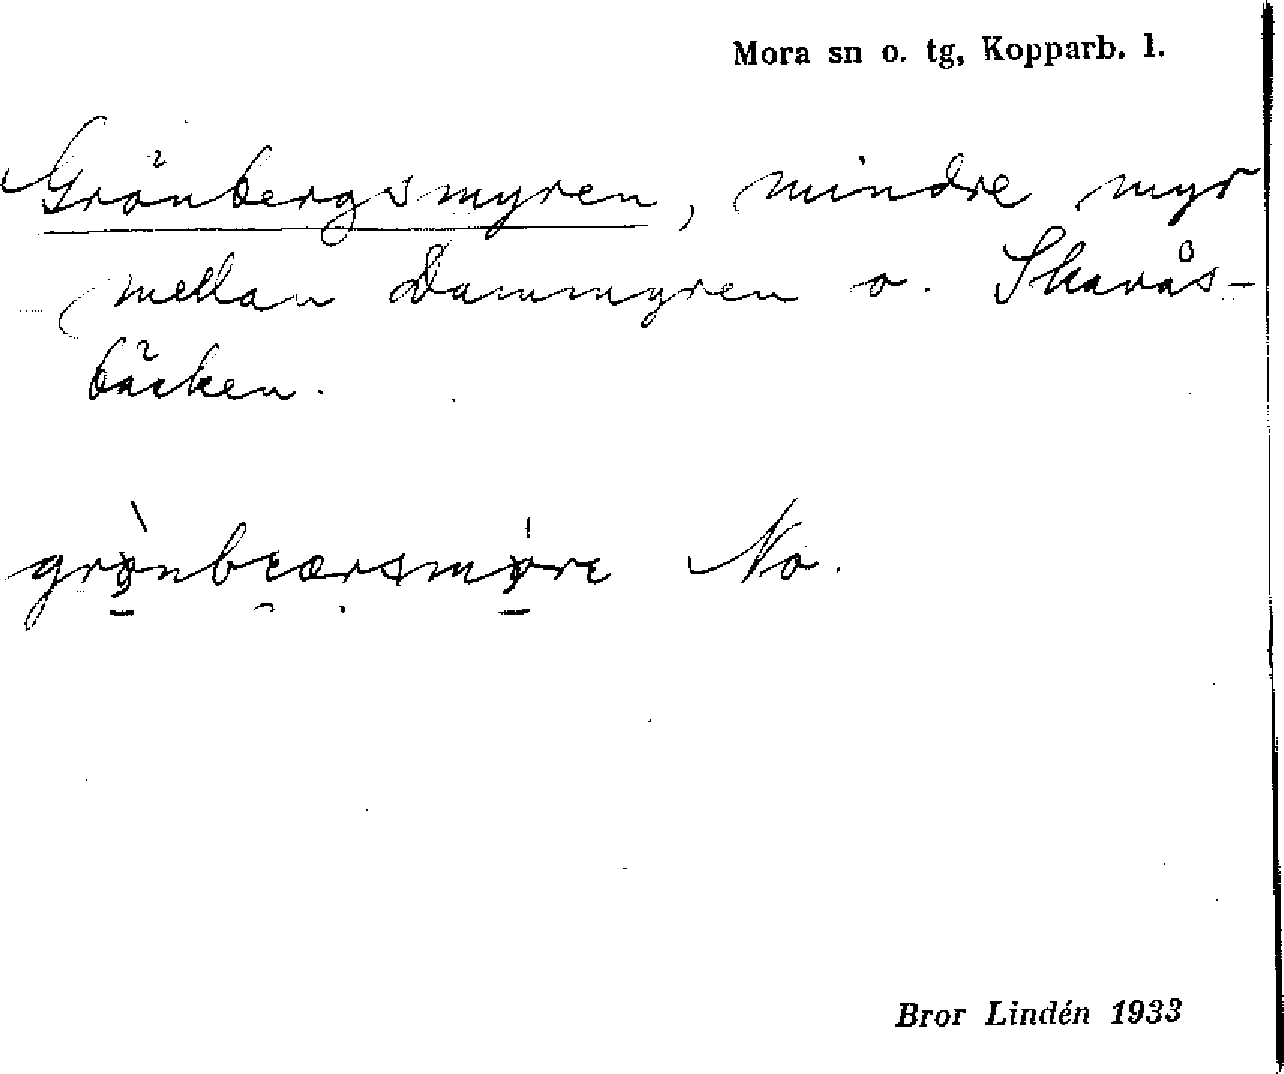 Mora sn o. tg, Kopparb. l.
Grönbergsmyren, mindre myr
mellan Dammyren o. Skarås-
bäcken.
No.
Bror Lindén 1933